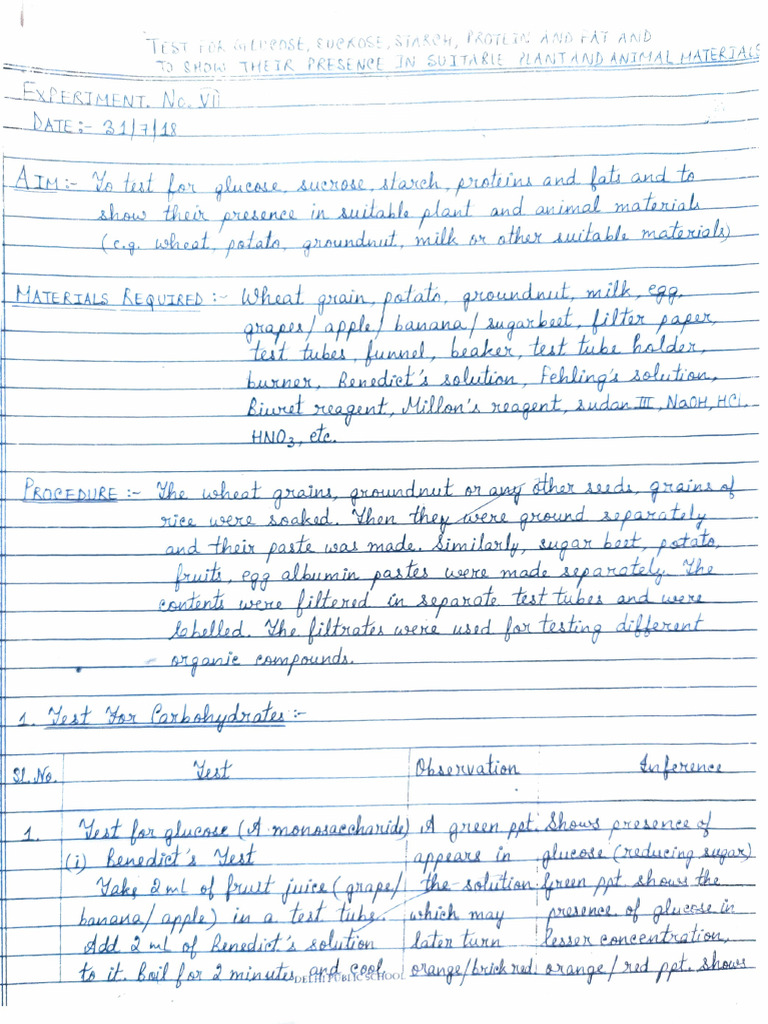 TEST FOR GLUCOSE, SUCROSE, STARCH, PROTEIN AND FAT AND
TO SHOW THEIR PRESENCE IN SUITABLE PLANT AND ANIMAL MATERIALS
EXPERIMENT. No. VII
DATE:- 31/7/18
AIM:- To test for glucose, sucrose, starch, proteins and fats and to
show their presence in suitable plant and animal materials
(e.g. wheat, potato, groundnut, milk or other suitable materials)
MATERIALS REQUIRED:- Wheat grain, potato, groundnut, milk, egg,
grapes/apple/banana/sugarbeet, filter paper,
test tubes, funnel, beaker, test tube holder,
burner, Benedict's solution, Fehling's solution,
Biuret reagent, Millon's reagent, sudan III, NaOH, HCl,
HNO3, etc.
PROCEDURE:- The wheat grains, groundnut or any other seeds, grains of
rice were soaked. Then they were ground separately
and their paste was made. Similarly, sugar beet, potato,
fruits, egg albumin pastes were made separately. The
contents were filtered in separate test tubes and were
labelled. The filtrates were used for testing different
organic compounds.
1. Test For Carbohydrates:-
Sl. No. Test Observation Inference
1. Test for glucose (A monosaccharide) A green ppt. Shows presence of
(i) Benedict's Test appears in glucose (reducing sugar)
Take 2 ml of fruit juice (grape/ the solution Green ppt. shows the
banana/apple) in a test tube. which may presence of glucose in
Add 2 ml of Benedict's solution later turn lesser concentration,
to it. Boil for 2 minutes and cool orange/brick red. orange/red ppt. shows
DELHI PUBLIC SCHOOL